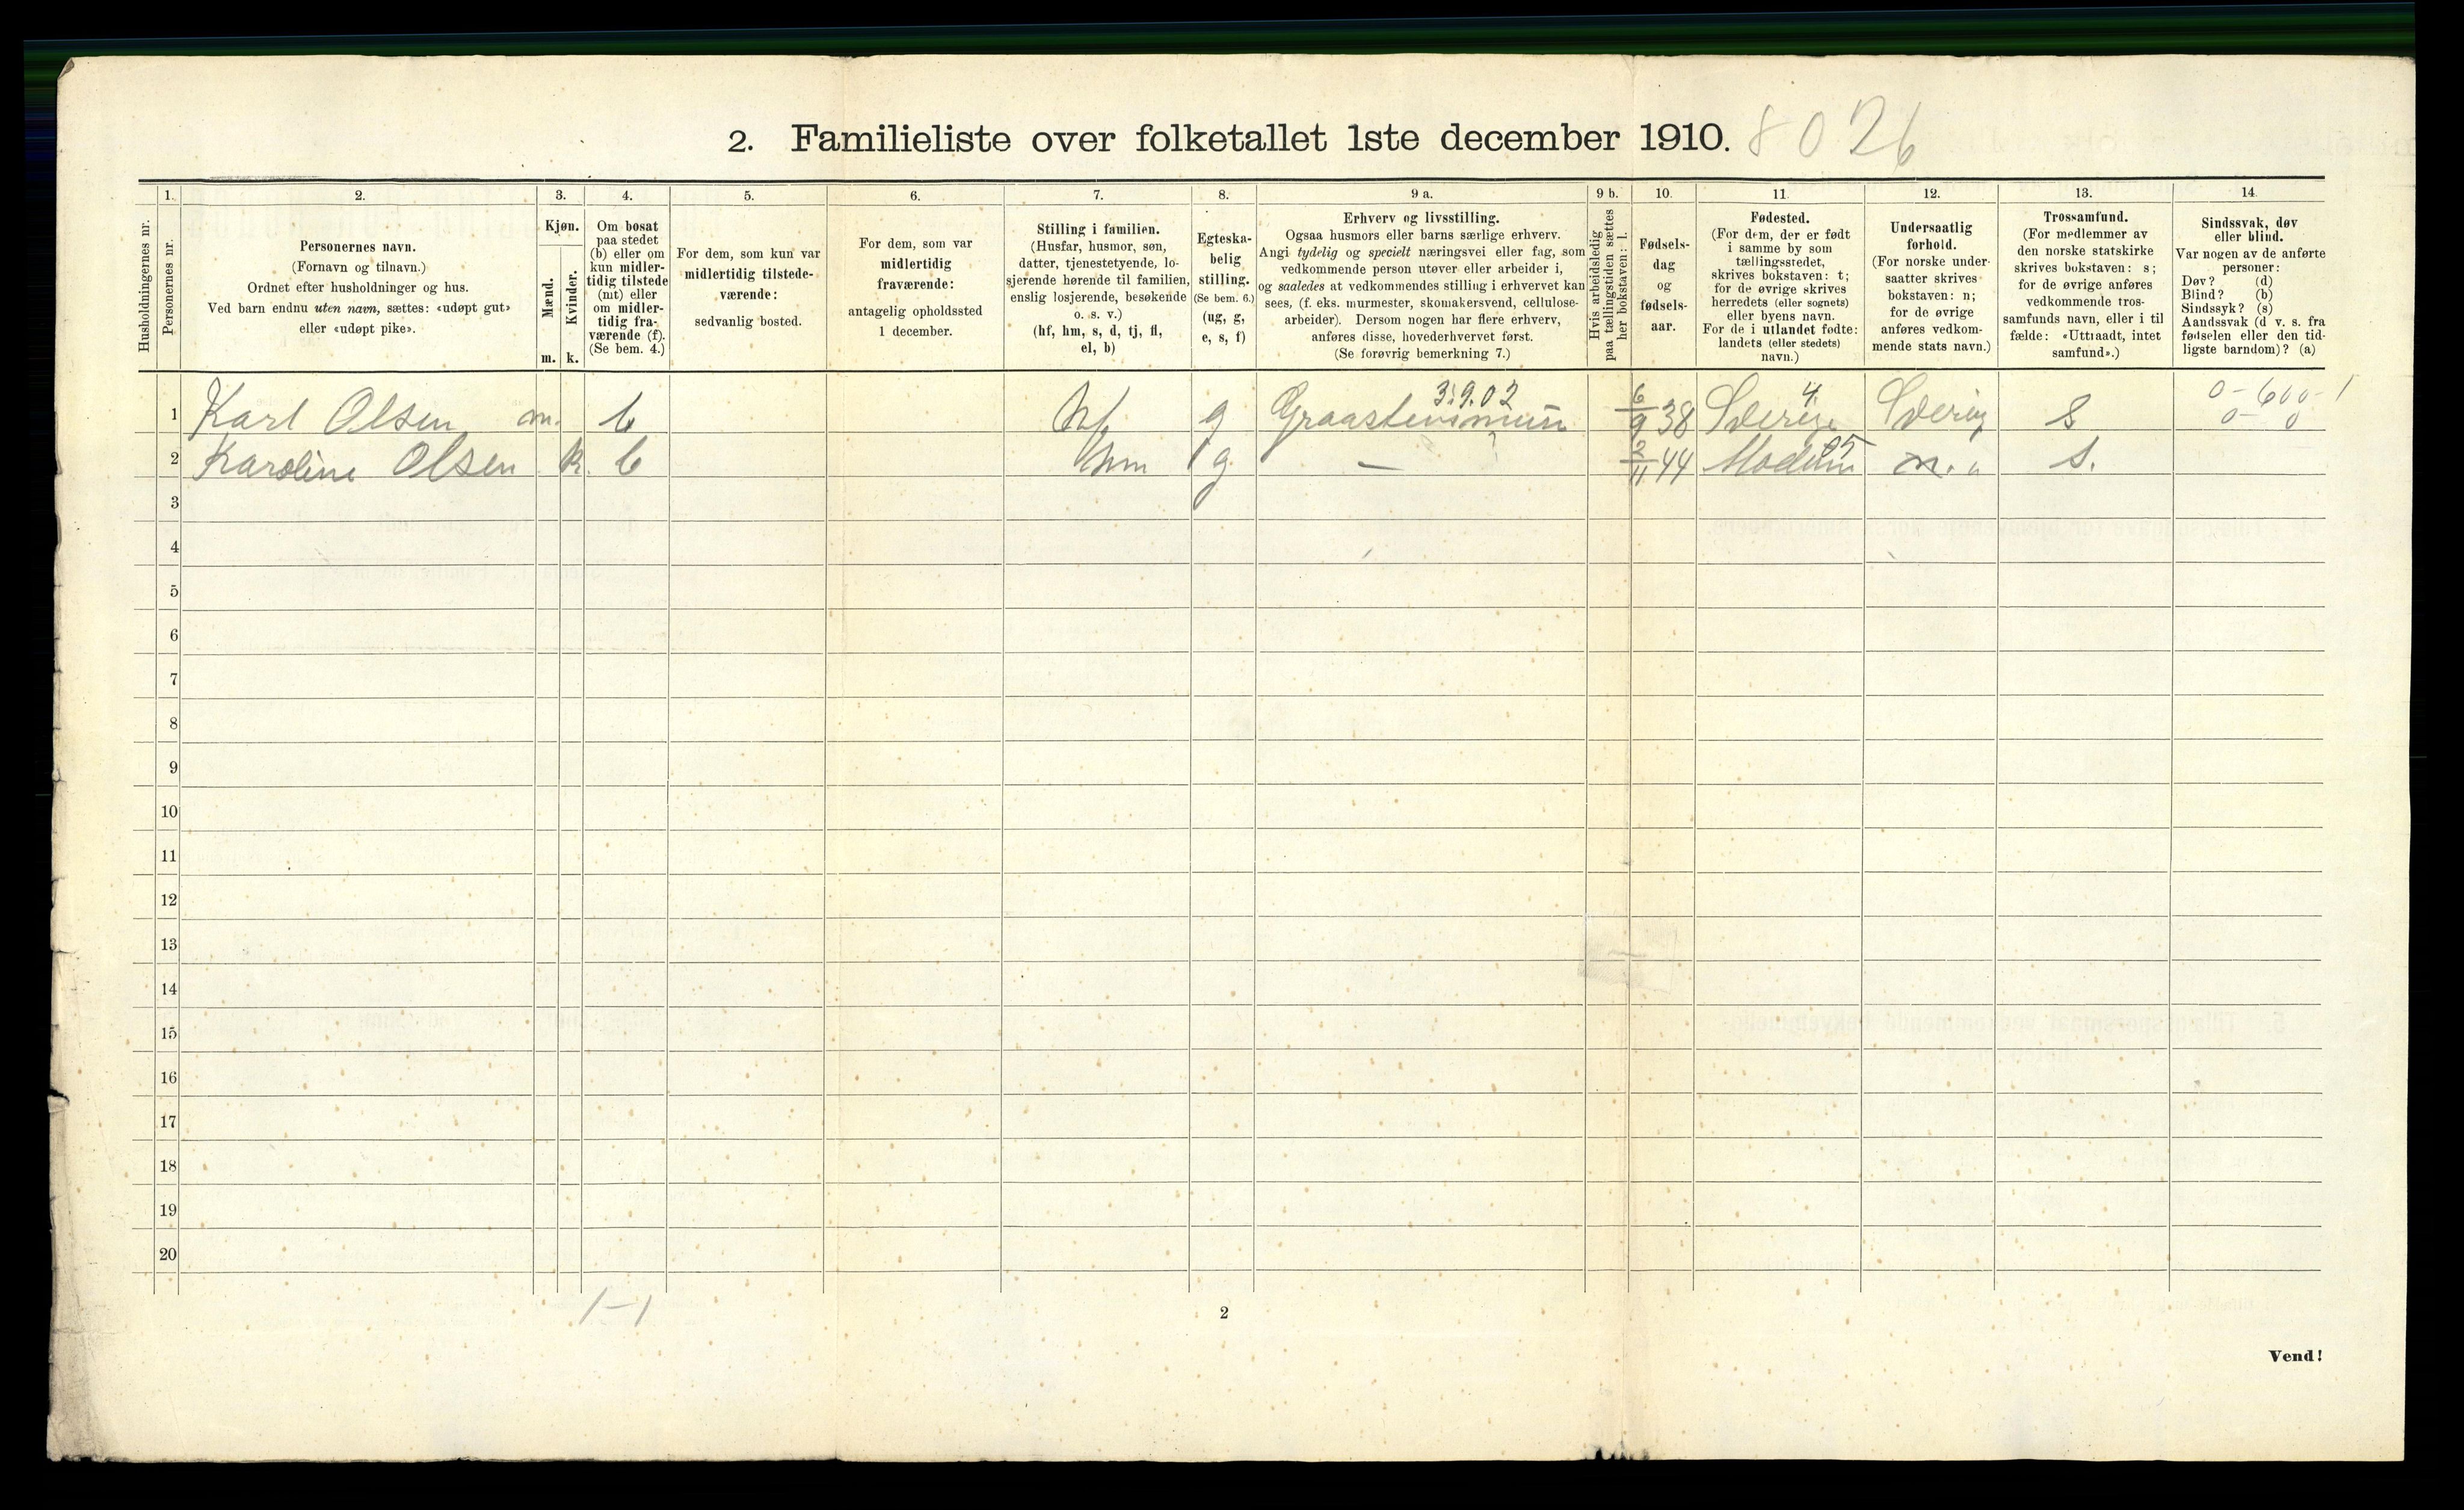 2. Familieliste over folketallet 1ste december 1910. 8026
Husholdningernes nr.
1.
Personernes nr.
2.
Personernes navn.
(Fornavn og tilnavn.)
Ordnet efter husholdninger og hus.
Ved barn endnu uten navn, sættes: «udøpt gut»
eller «udøpt pike».
3.
Kjøn.
Mænd.
Kvinder.
m. k.
4.
Om bosat
paa stedet
(b) eller om
kun midler-
tidig tilstede
(mt) eller
om midler-
tidig fra-
værende (f).
(Se bem. 4.)
5.
For dem, som kun var
midlertidig tilstede-
værende:
sedvanlig bosted.
6.
For dem, som var
midlertidig
fraværende:
antagelig opholdssted
1 december.
7.
Stilling i familien.
(Husfar, husmor, søn,
datter, tjenestetyende, lo-
sjerende hørende til familien,
enslig losjerende, besøkende
o. s. v.)
(hf, hm, s, d, tj, fl,
el, b)
8.
Egteska-
belig
stilling.
(Se bem. 6.)
(ug, g,
e, s, f)
9 a.
Erhverv og livsstilling.
Ogsaa husmors eller barns særlige erhverv.
Angi tydelig og specielt næringsvei eller fag, som
vedkommende person utøver eller arbeider i,
og saaledes at vedkommendes stilling i erhvervet kan
sees, (f. eks. murmester, skomakersvend, cellulose-
arbeider). Dersom nogen har flere erhverv,
anføres disse, hovederhvervet først.
(Se forøvrig bemerkning 7.)
9 b.
Hvis arbeidsledig
paa tællingstiden sættes
her bokstaven: l.
10.
Fødsels-
dag
og
fødsels-
aar.
11.
Fødested.
(For dem, der er født
i samme by som
tællingsstedet,
skrives bokstaven: t;
for de øvrige skrives
herredets (eller sognets)
eller byens navn.
For de i utlandet fødte:
landets (eller stedets)
navn.)
12.
Undersaatlig
forhold.
(For norske under-
saatter skrives
bokstaven: n;
for de øvrige
anføres vedkom-
mende stats navn.)
13.
Trossamfund.
(For medlemmer av
den norske statskirke
skrives bokstaven: s;
for de øvrige anføres
vedkommende tros-
samfunds navn, eller i til
fælde: «Uttraadt, intet
samfund».)
14.
Sindssvak, døv
eller blind.
Var nogen av de anførte
personer:
Døv? (d)
Blind? (b)
Sindssyk? (s)
Aandssvak (d v. s. fra
fødselen eller den tid-
ligste barndom)? (a)
3.9.02 4 0-600-1
1 Karl Olsen m. b hf g 6/9 38 Sverige Sverig s 0- 0
2 Karoline Olsen k. b hm g. — 2/11 44 Modum n. s.
3
4
5
6
7
8
9
10
11
12
13
14
15
16
17
18
19
20
1-1
2
Vend!